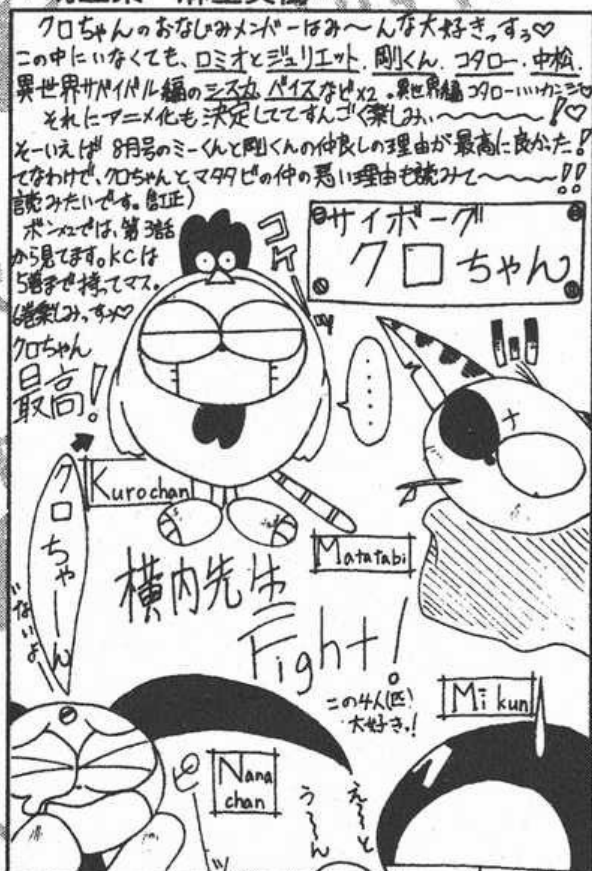 クロちゃんのおなじみメンバーはみ〜んな大好きっすぅ♡
この中にいなくても、ロミオとジュリエット、剛くん、コタロー、中松、
異世界サバイバル編のシス丸、バイスなどx2。異世界編コタローいいカンジ♡
それにアニメ化も決定しててすんごく楽しみぃ〜〜〜!♡
そーいえば 8月号のミーくんと剛くんの仲良しの理由が最高に良かった!
てなわけで、クロちゃんとマタタビの仲の悪い理由も読みて〜〜〜!!
読みたいです。(訂正)
ボンx2では、第3話
から見てます。KCは
5巻まで持ってマス。
6巻楽しみっすぅ♡
クロちゃん
最高!
サイボーグ
クロちゃん
コケーッ
・・・・
Kurochan
Matatabi
クロちゃーん
ないよ
横内先生
Fight!
この4人(匹)
大好きっ!
Mi kun
Nana
chan
えーと
うーん